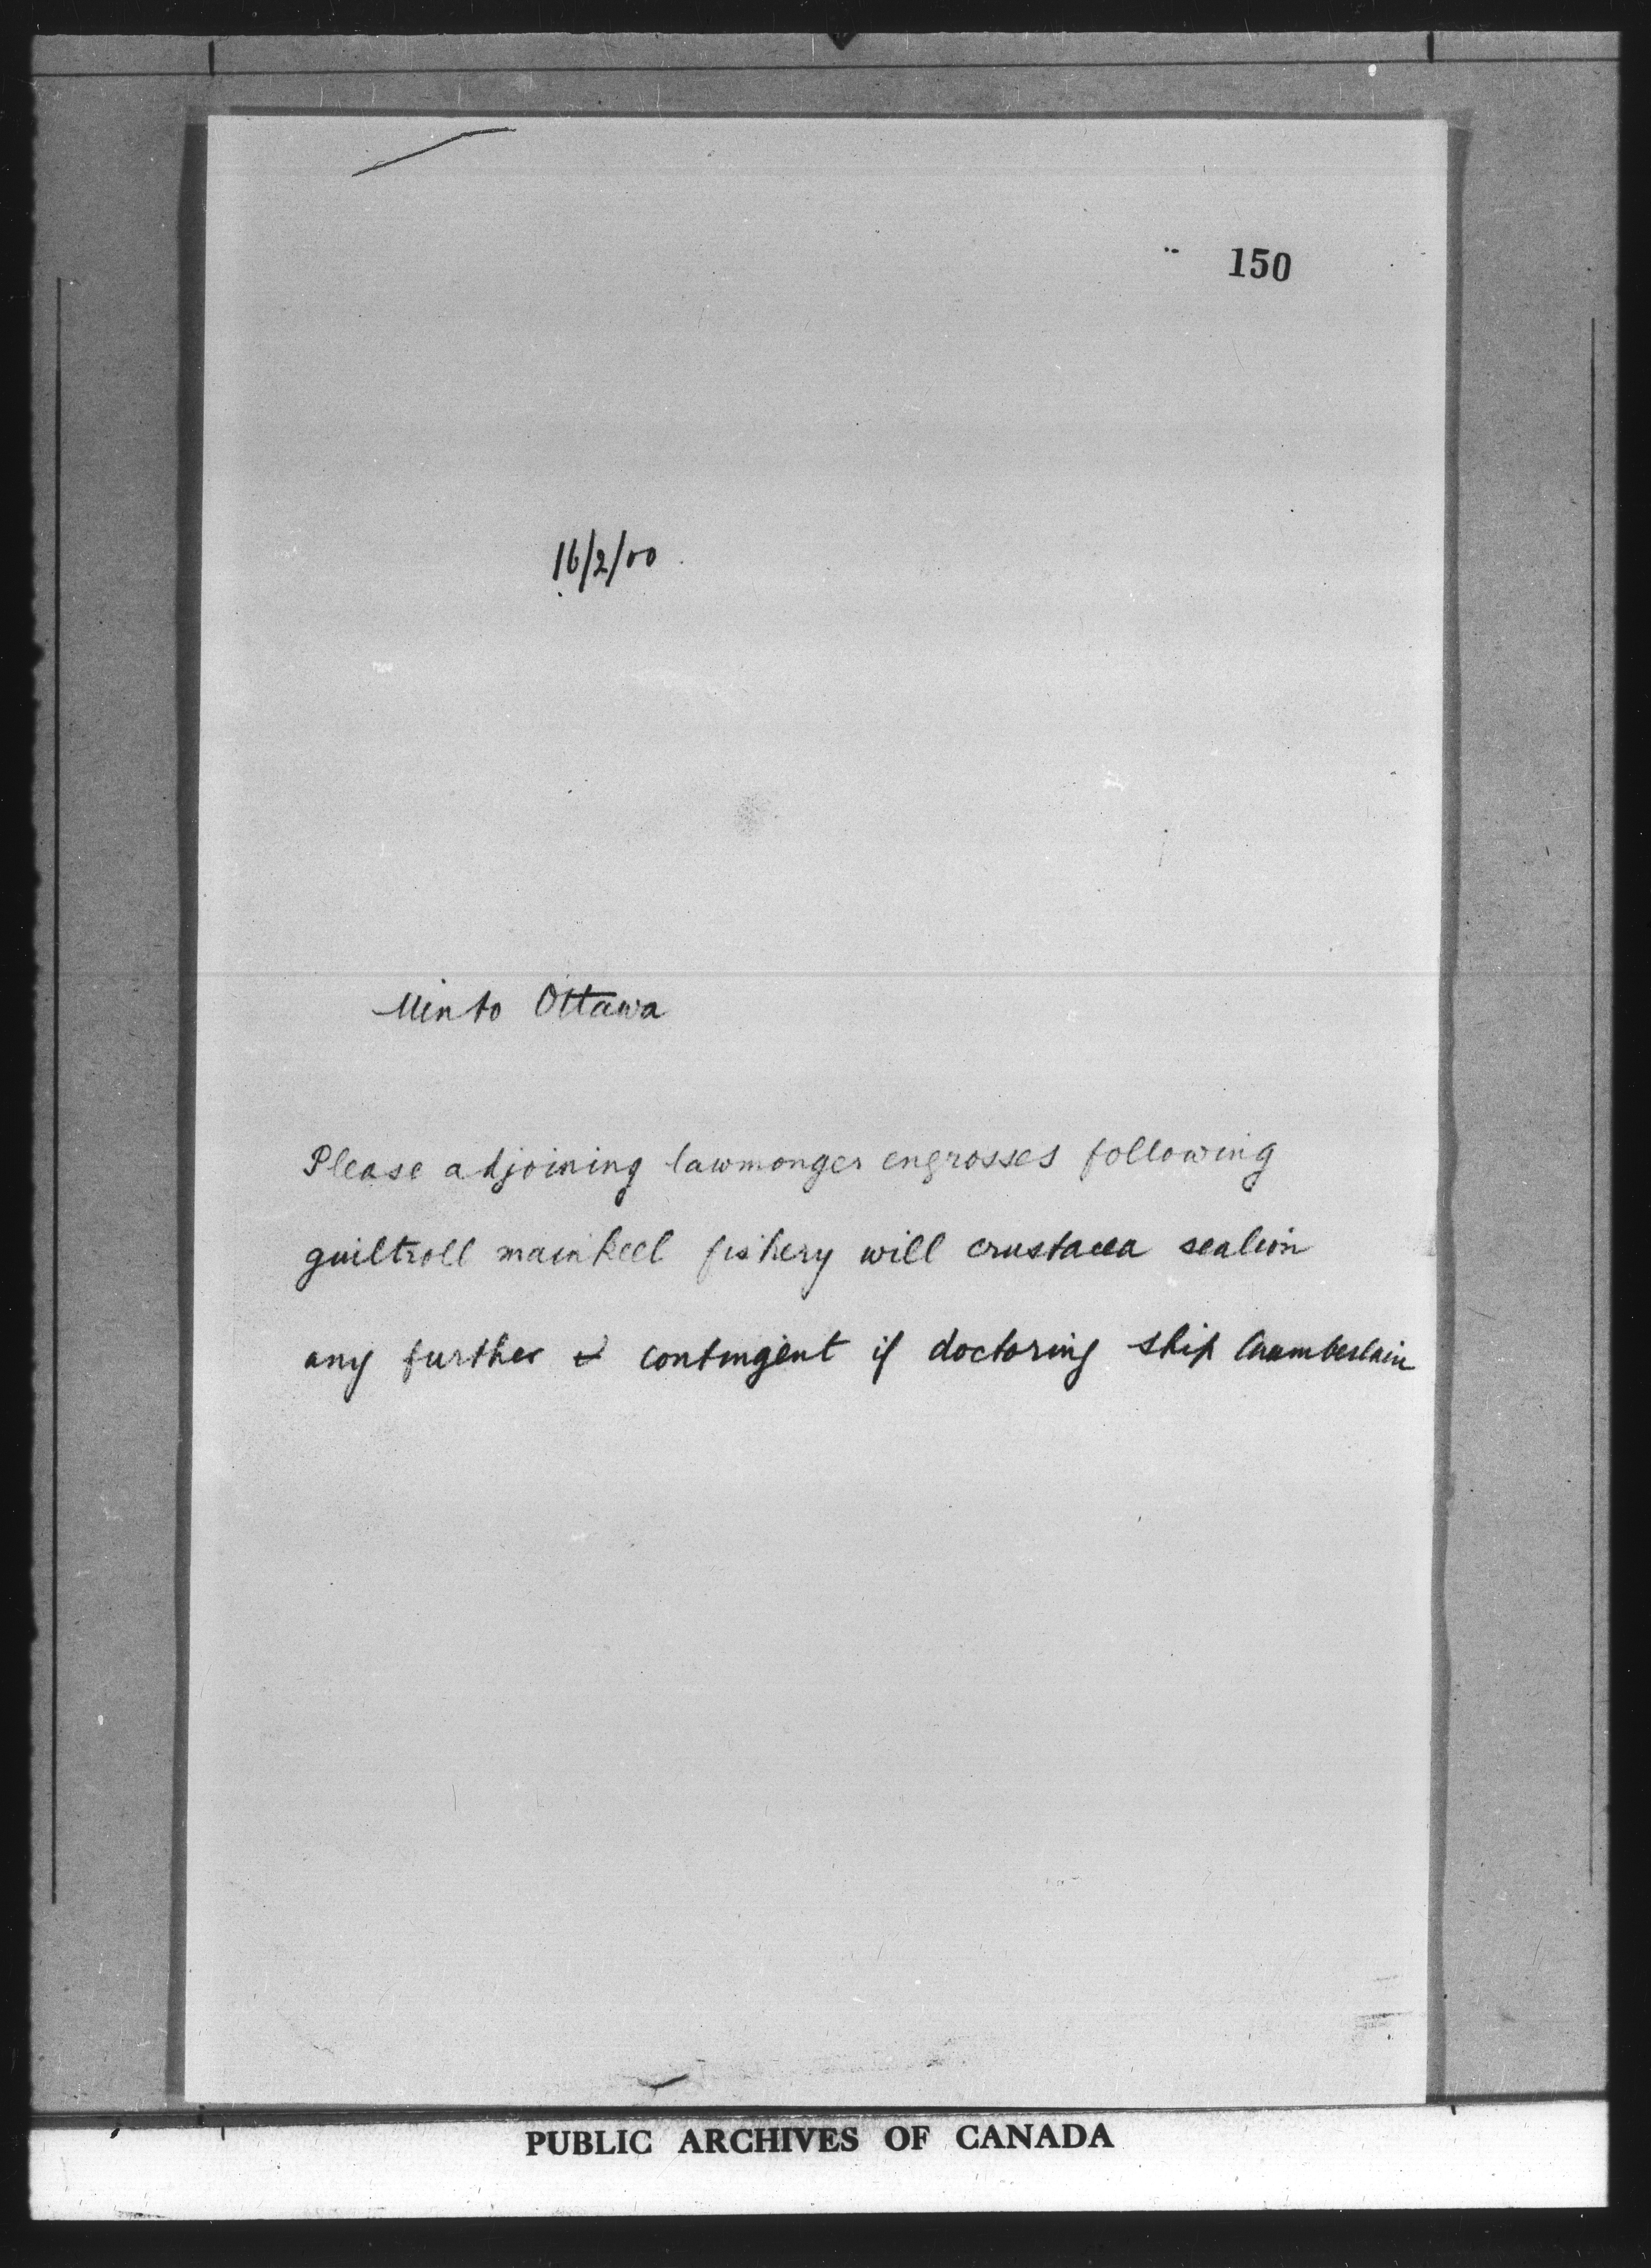 150
16/2/00
Minto Ottawa
Please adjoining lawmonger engrosses following
guiltroll mainkeel fishery will crustacea sealion
any further & contingent if doctoring ship Chamberlain
PUBLIC ARCHIVES OF CANADA